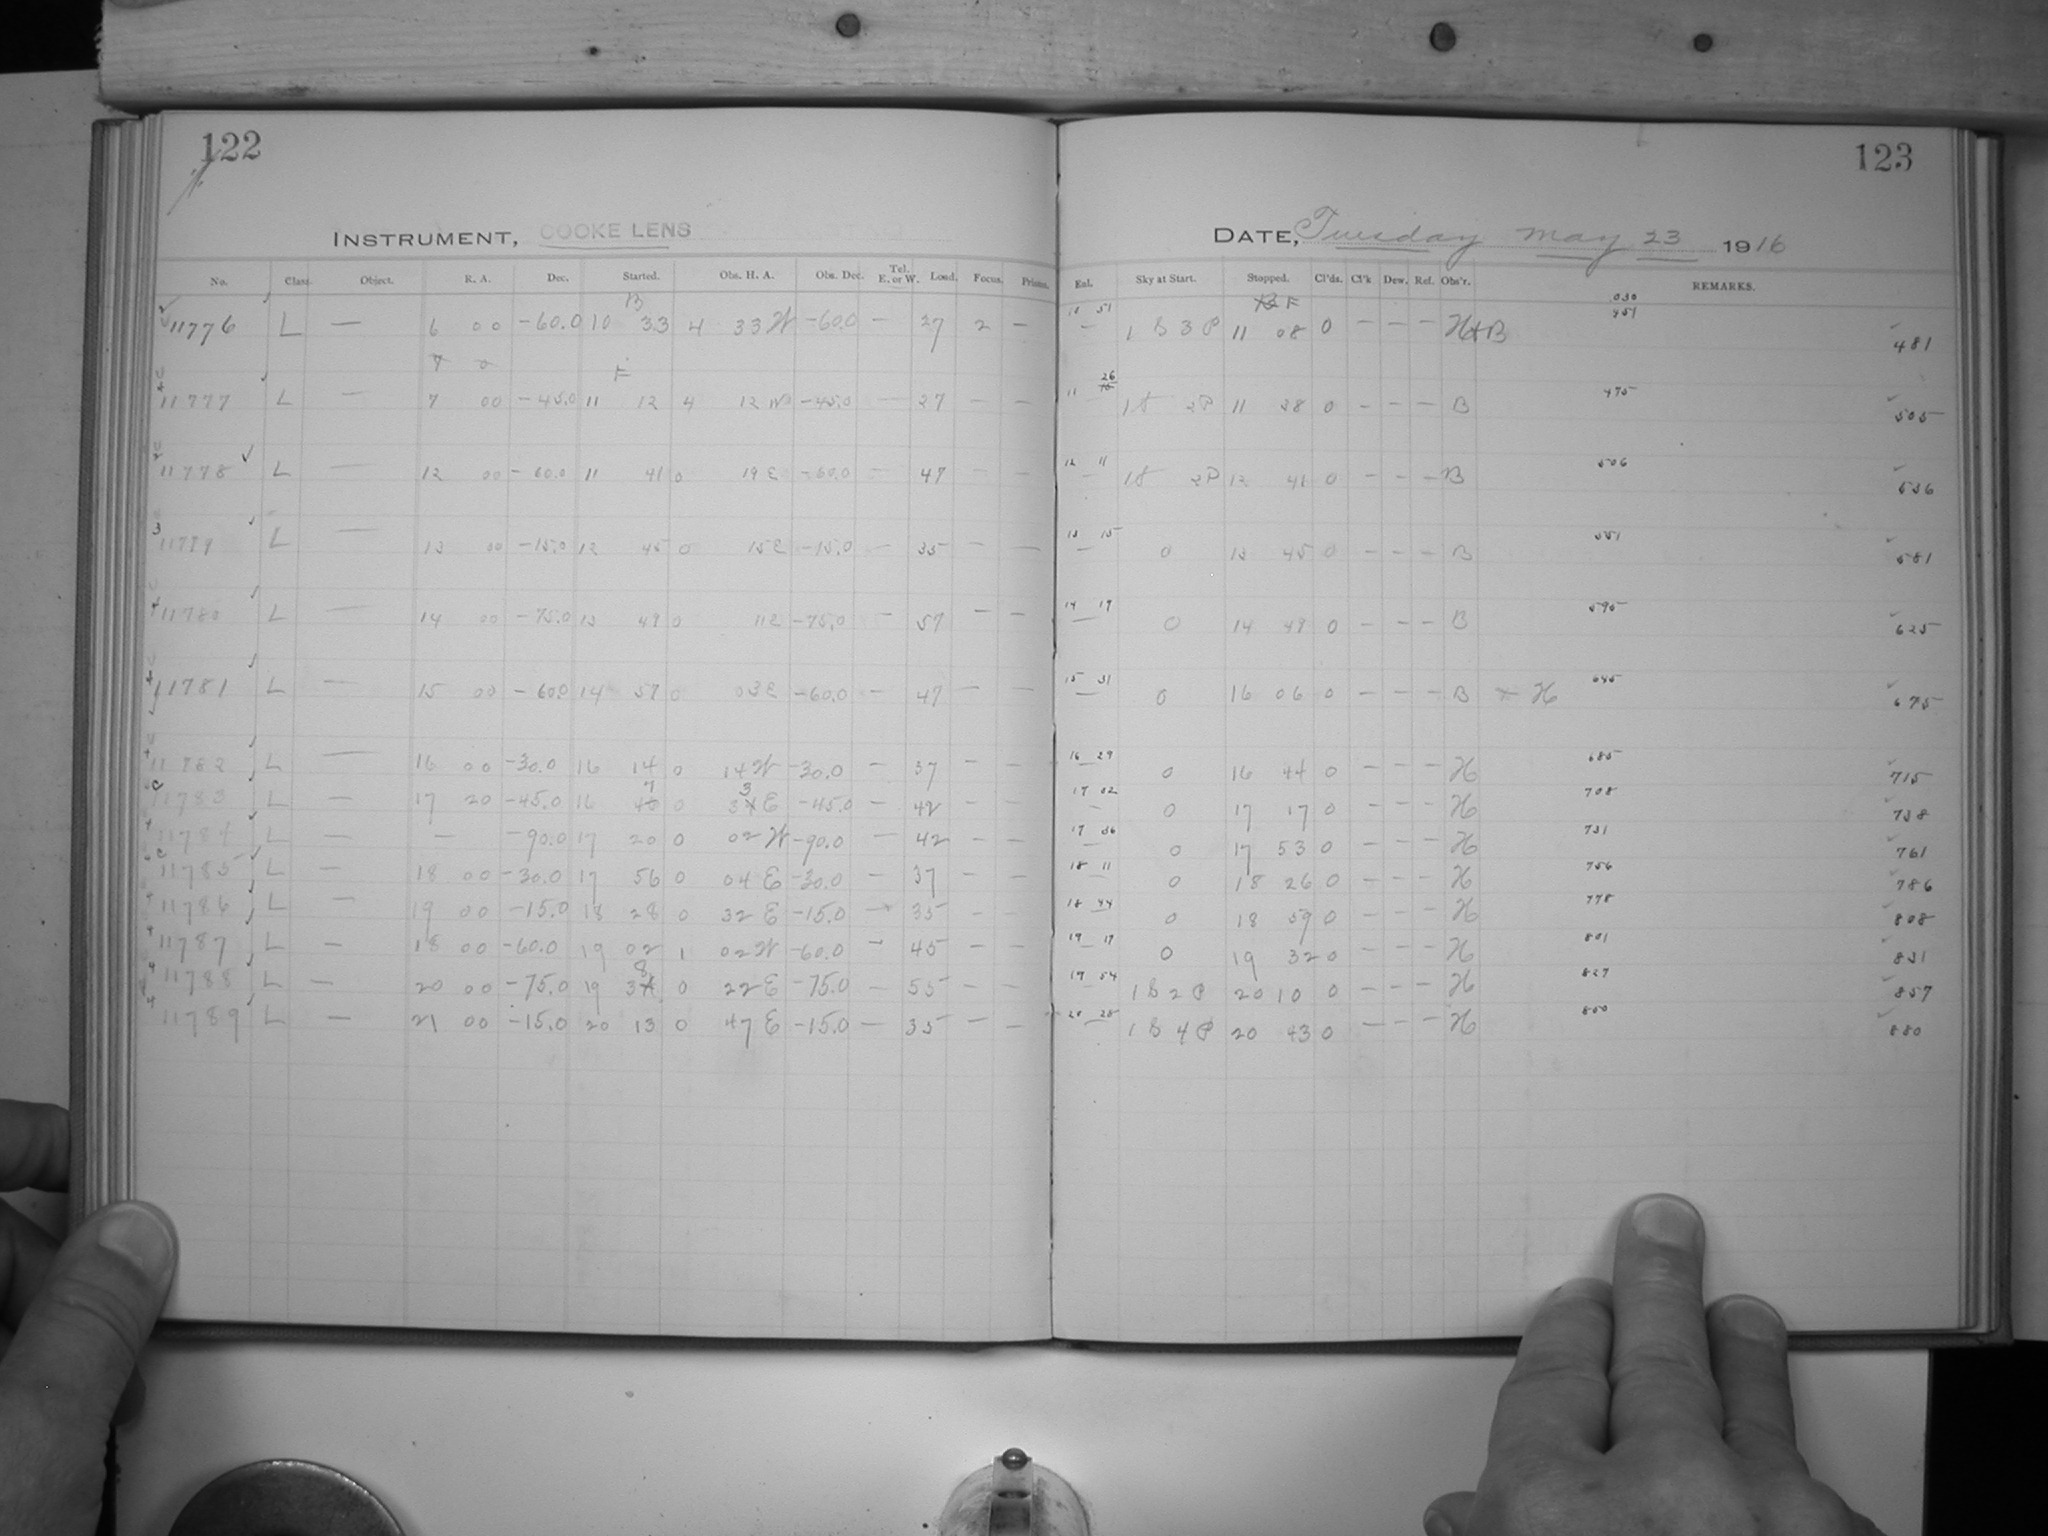 122
123
INSTRUMENT, COOKE LENS
DATE, Tuesday May 23 1916
No. Class. Object. R. A. Dec. Started. Obs. H. A. Obs. Dec. Tel. E. or W. Load. Focus. Prisms. Enl. Sky at Start. Stopped. Cl'ds. Cl'k Dew. Ref. Obs'r. REMARKS.
11776 L — 6 00 -60.0 10 33 4 33 W -60.0 — 27 2 — — 1 B 3 P 11 08 0 — — — H+B 481
11777 L — 7 00 -45.0 11 12 4 12 W -45.0 — 27 — — 11 26 1B 2P 11 38 0 — — — B 475 505
11778 L — 12 00 -60.0 11 41 0 19 E -60.0 — 47 — — 12 11 1B 2P 12 41 0 — — — B 506 536
11779 L — 13 00 -15.0 12 45 0 15 E -15.0 — 35 — — 13 15 0 13 45 0 — — — B 551 581
11780 L — 14 00 -75.0 13 49 0 11 E -75.0 — 57 — — 14 19 0 14 49 0 — — — B 595 625
11781 L — 15 00 -60.0 14 57 0 03 E -60.0 — 47 — — 15 31 0 16 06 0 — — — B + H 645 675
11782 L — 16 00 -30.0 16 14 0 14 W -30.0 — 37 — — 16 29 0 16 44 0 — — — H 685 715
11783 L — 17 20 -45.0 16 47 0 33 E -45.0 — 42 — — 17 02 0 17 17 0 — — — H 708 738
11784 L — — -90.0 17 20 0 02 W -90.0 — 42 — — 17 36 0 17 53 0 — — — H 731 761
11785 L — 18 00 -30.0 17 56 0 04 E -30.0 — 37 — — 18 11 0 18 26 0 — — — H 756 786
11786 L — 19 00 -15.0 18 28 0 32 E -15.0 — 35 — — 18 44 0 18 59 0 — — — H 778 808
11787 L — 18 00 -60.0 19 02 1 02 W -60.0 — 45 — — 19 17 0 19 32 0 — — — H 801 831
11788 L — 20 00 -75.0 19 38 0 22 E -75.0 — 55 — — 19 54 1 B 2 P 20 10 0 — — — H 827 857
11789 L — 21 00 -15.0 20 13 0 47 E -15.0 — 35 — — 20 28 1 B 4 P 20 43 0 — — — H 850 880